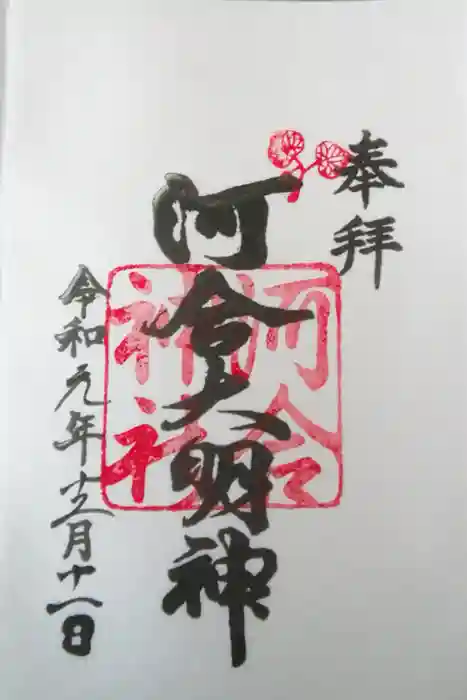 奉拝
河合大明神
河合
神社
令和元年十二月十一日